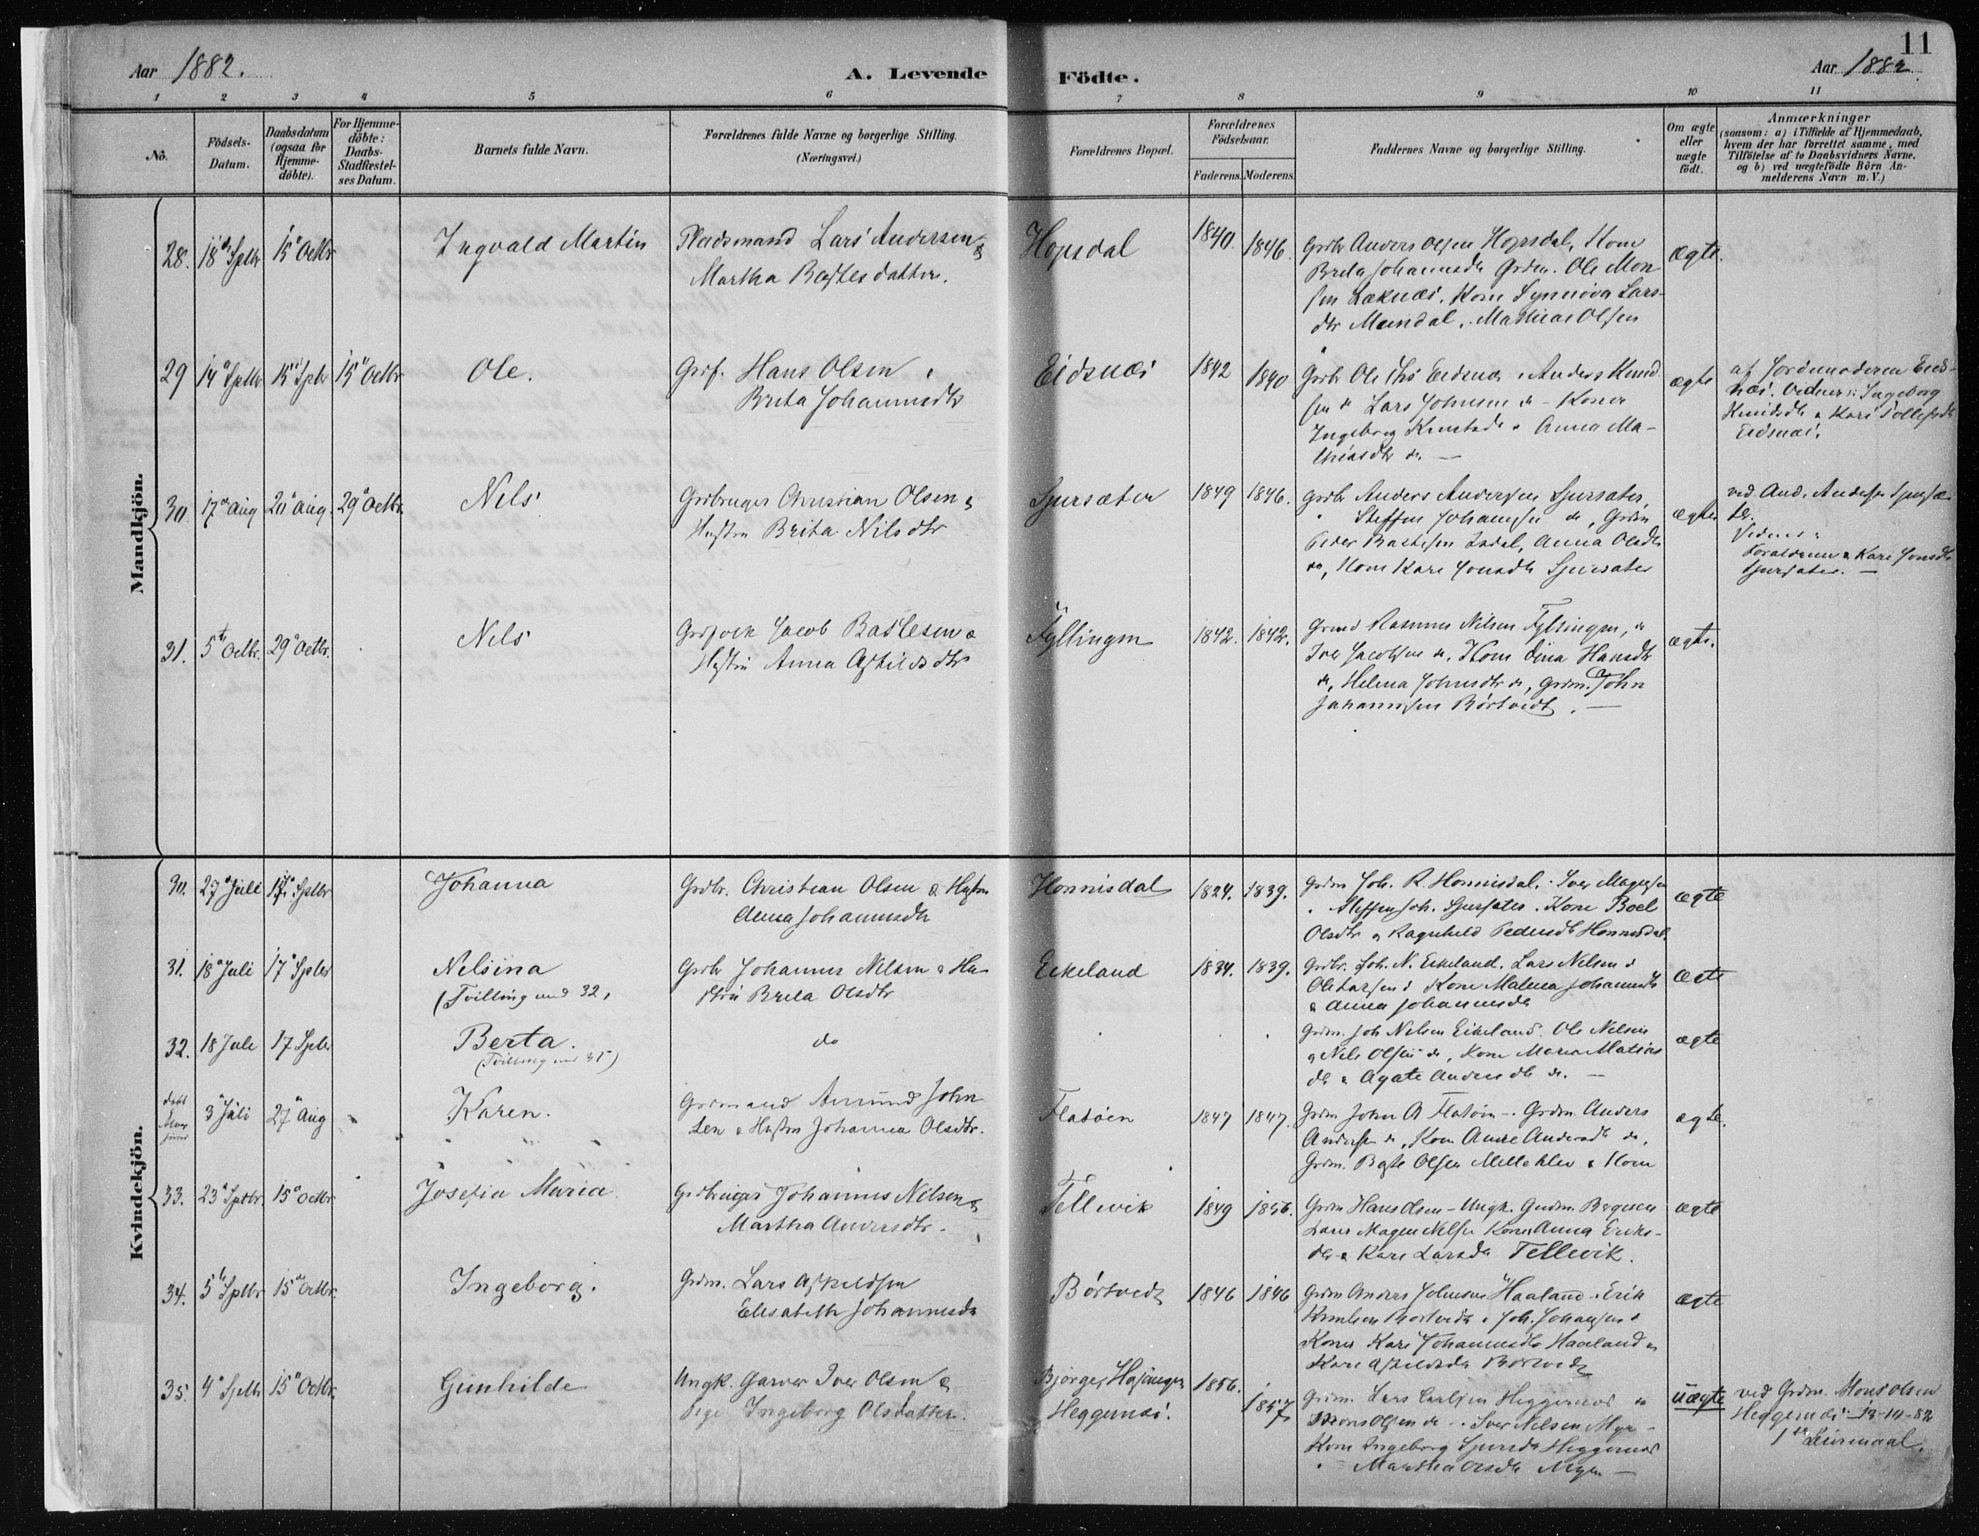 Aar 1882.
A. Levende Födte.
Aar 1882
11
1 2 3 4 5 6 7 8 9 10 11
No.
Födsels-Datum.
Daabsdatum (ogsaa for Hjemme-döbte).
For Hjemme-döbte: Daabs-Stadfæstel-ses Datum.
Barnets fulde Navn.
Forældrenes fulde Navne og borgerlige Stilling.
(Næringsvei.)
Forældrenes Bopæl.
Forældrenes Födselsaar.
Faderens. Moderens.
Faddernes Navne og borgerlige Stilling.
Om ægte eller uægte födt.
Anmærkninger
(saasom: a) i Tilfælde af Hjemmedaab,
hvem der har forrettet samme, med
Tilföielse af to Daabsvidners Navne,
og b) ved uægtefödte Börn An-
melderens Navn m. V.)
Mandkjön.
28. 18 Sptbr 15 Octbr Ingvald Martin Pladsmand Lars Andersen &
Martha Bastesdatter.
Hopsdal 1840. 1846.
Grbr Anders Olsen Hopsdal, Kone
Brita Johannesdtr Grdm. Ole Mon
sen Kone Synnöva Lars-
dtr Mathias Olsen
ægte.
29 14 Sptbr 15 Sptbr 15 Octbr Ole. Hans Olsen
Brita Johannesdtr
Eidsnæs 1842 1840
Ole Eidsnæs Anders Knud
sen do Lars Johnsen do - Koner
Ingeborg Knutsdtr & Anna Ma-
thiasdtr do. —
ægte
af Jordemoderen Eids-
næs. Vidner: Ingeborg
Knudsdtr & Kari
Eidsnæs.
30 17 Aug 20 Aug. 29 Octbr. Nels Grdbruger Christian Olsen &
Hustru Brita Nilsdtr
Spursæter 1849 1846.
Grbr Anders Andersen Spursæter,
Steffen Johannesen do, Grdm
Peder Bastesen Isdal, Anna Olsdtr
do, Kone Kari Jonsdtr Spursæter
ægte
ved And. Andersen Spursæ
ter.
Vidner:
Forældrene & Kari Jonsdtr
Spursæter. —
31. 5 Octbr. 29 Octbr. Nels Jacob Bastesen &
Hustru Anna Askildsdtr
Fyllingen 1842. 1842.
Grmd Rasmus Nilsen Fyllingen,
Iver Jacobsen do. Kone Dina Hansdtr
do, Helena Johnsdtr do, Grdm. John
Johannesen Börtvedt. —
ægte.
Kvindekjön.
30. 27 Juli 17 Sptbr Johanna Grdbr. Christian Olsen & Hustru
Anna Johannesdtr
Honnisdal 1824. 1839.
Grdm Joh. R. Honnisdal, Iver Magnesen
Steffen Joh. Spursæter. Kone Boel
Olsdtr & Ragnhild Pedersdtr Honnisdal
ægte
31. 18 Juli 17 Sptbr Nelsina
(Tvilling med 32.
Grbr Johannes Nilsen & Hu-
stru Brita Olsdtr
Eikeland 1834. 1839.
Grdbr. Joh. N. Eikeland. Lars Nelsen &
Ole Larsen Kone Malena Johannesdtr
& Anna Johannesdtr
ægte
32. 18 Juli 17 Sptbr Berta.
(Tvilling med 31)
do
Grdm. Joh Nelsen Eikeland. Ole Nelsen
& Nels Olsen do, Kone Maren Matias
dtr & Agate Andersdtr do. —
ægte
3 Juli 27 Aug Karen. Grdmand Amund John
sen & Hustru Johanna Olsdtr.
Flatöen 1847 1847.
Grdm John A Flatöen -. Grdm Anders
Andersen do, Kone Andersdtr do,
Grdm. Baste Olsen & Kone
ægte.
33. 23 Sptbr 15 Octbr. Josefia Maria Grdbruger Johannes Nilsen &
Martha Andersdtr.
Tellevik 1849 1856.
Grdm Hans Olsen - Ungk. Gudm. Bergesen
Lars Nelsen Kone Anna Eriks-
dtr & Kari Larsdtr Tellevik.
ægte
34. 5 Sptbr 15 Octbr. Ingeborg. Grdm. Lars Askildsen
Elisabeth Johannesdtr
Börtvedt 1846 1846
Grdm Anders Johnsen Haaland. Erik
Knudsen Börtvedt & Joh. Johansen &
Koner Kari Johannesdtr Haaland &
Kari Askildsdtr Börtvedt
ægte
35. 4 Sptbr 15 Octbr. Gunhilde Ungk. Garver Iver Olsen &
Pige Ingeborg Olsdatter.
Heggernæs. 1856. 1857
Grdm. Lars Carlsen Heggernæs
Mons Olsen do - Iver Nilsen Myr-
Kone Ingeborg Heggernæs
Martha Olsdtr —
uægte
ved Grdm. Mons Olsen
Heggernæs 13-10-82
1ste Leiermaal.